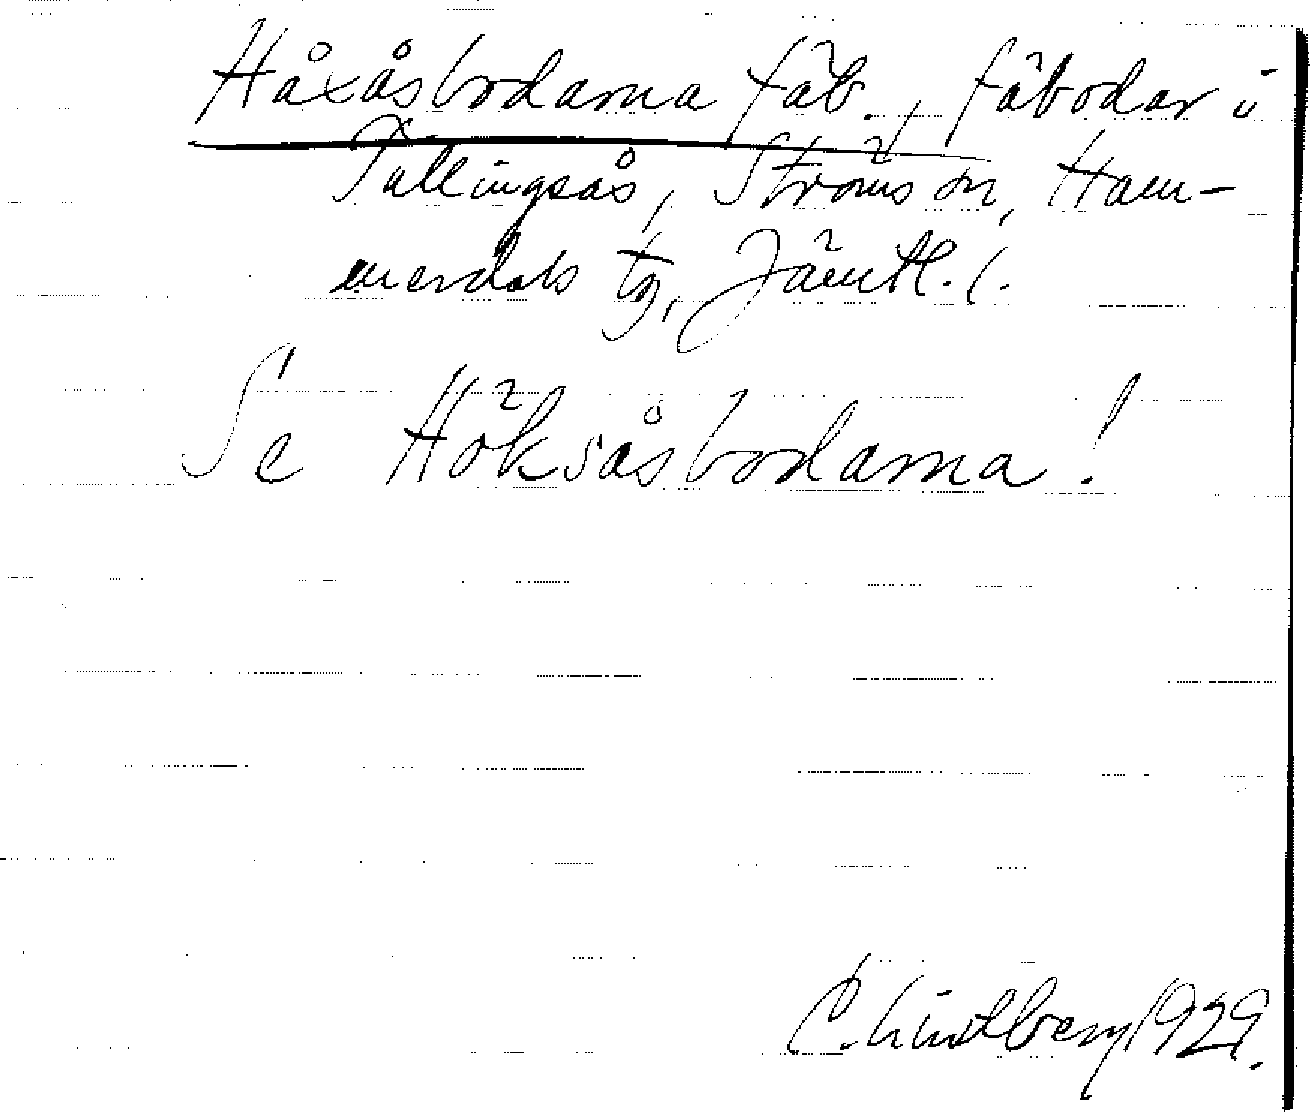 Håxåsbodarna fäb., fäbodar i
Tullingsås, Ströms sn, Ham-
merdals tg, Jämtl. l.
Se Höksåsbodarna!
C. Lindberg 1929.